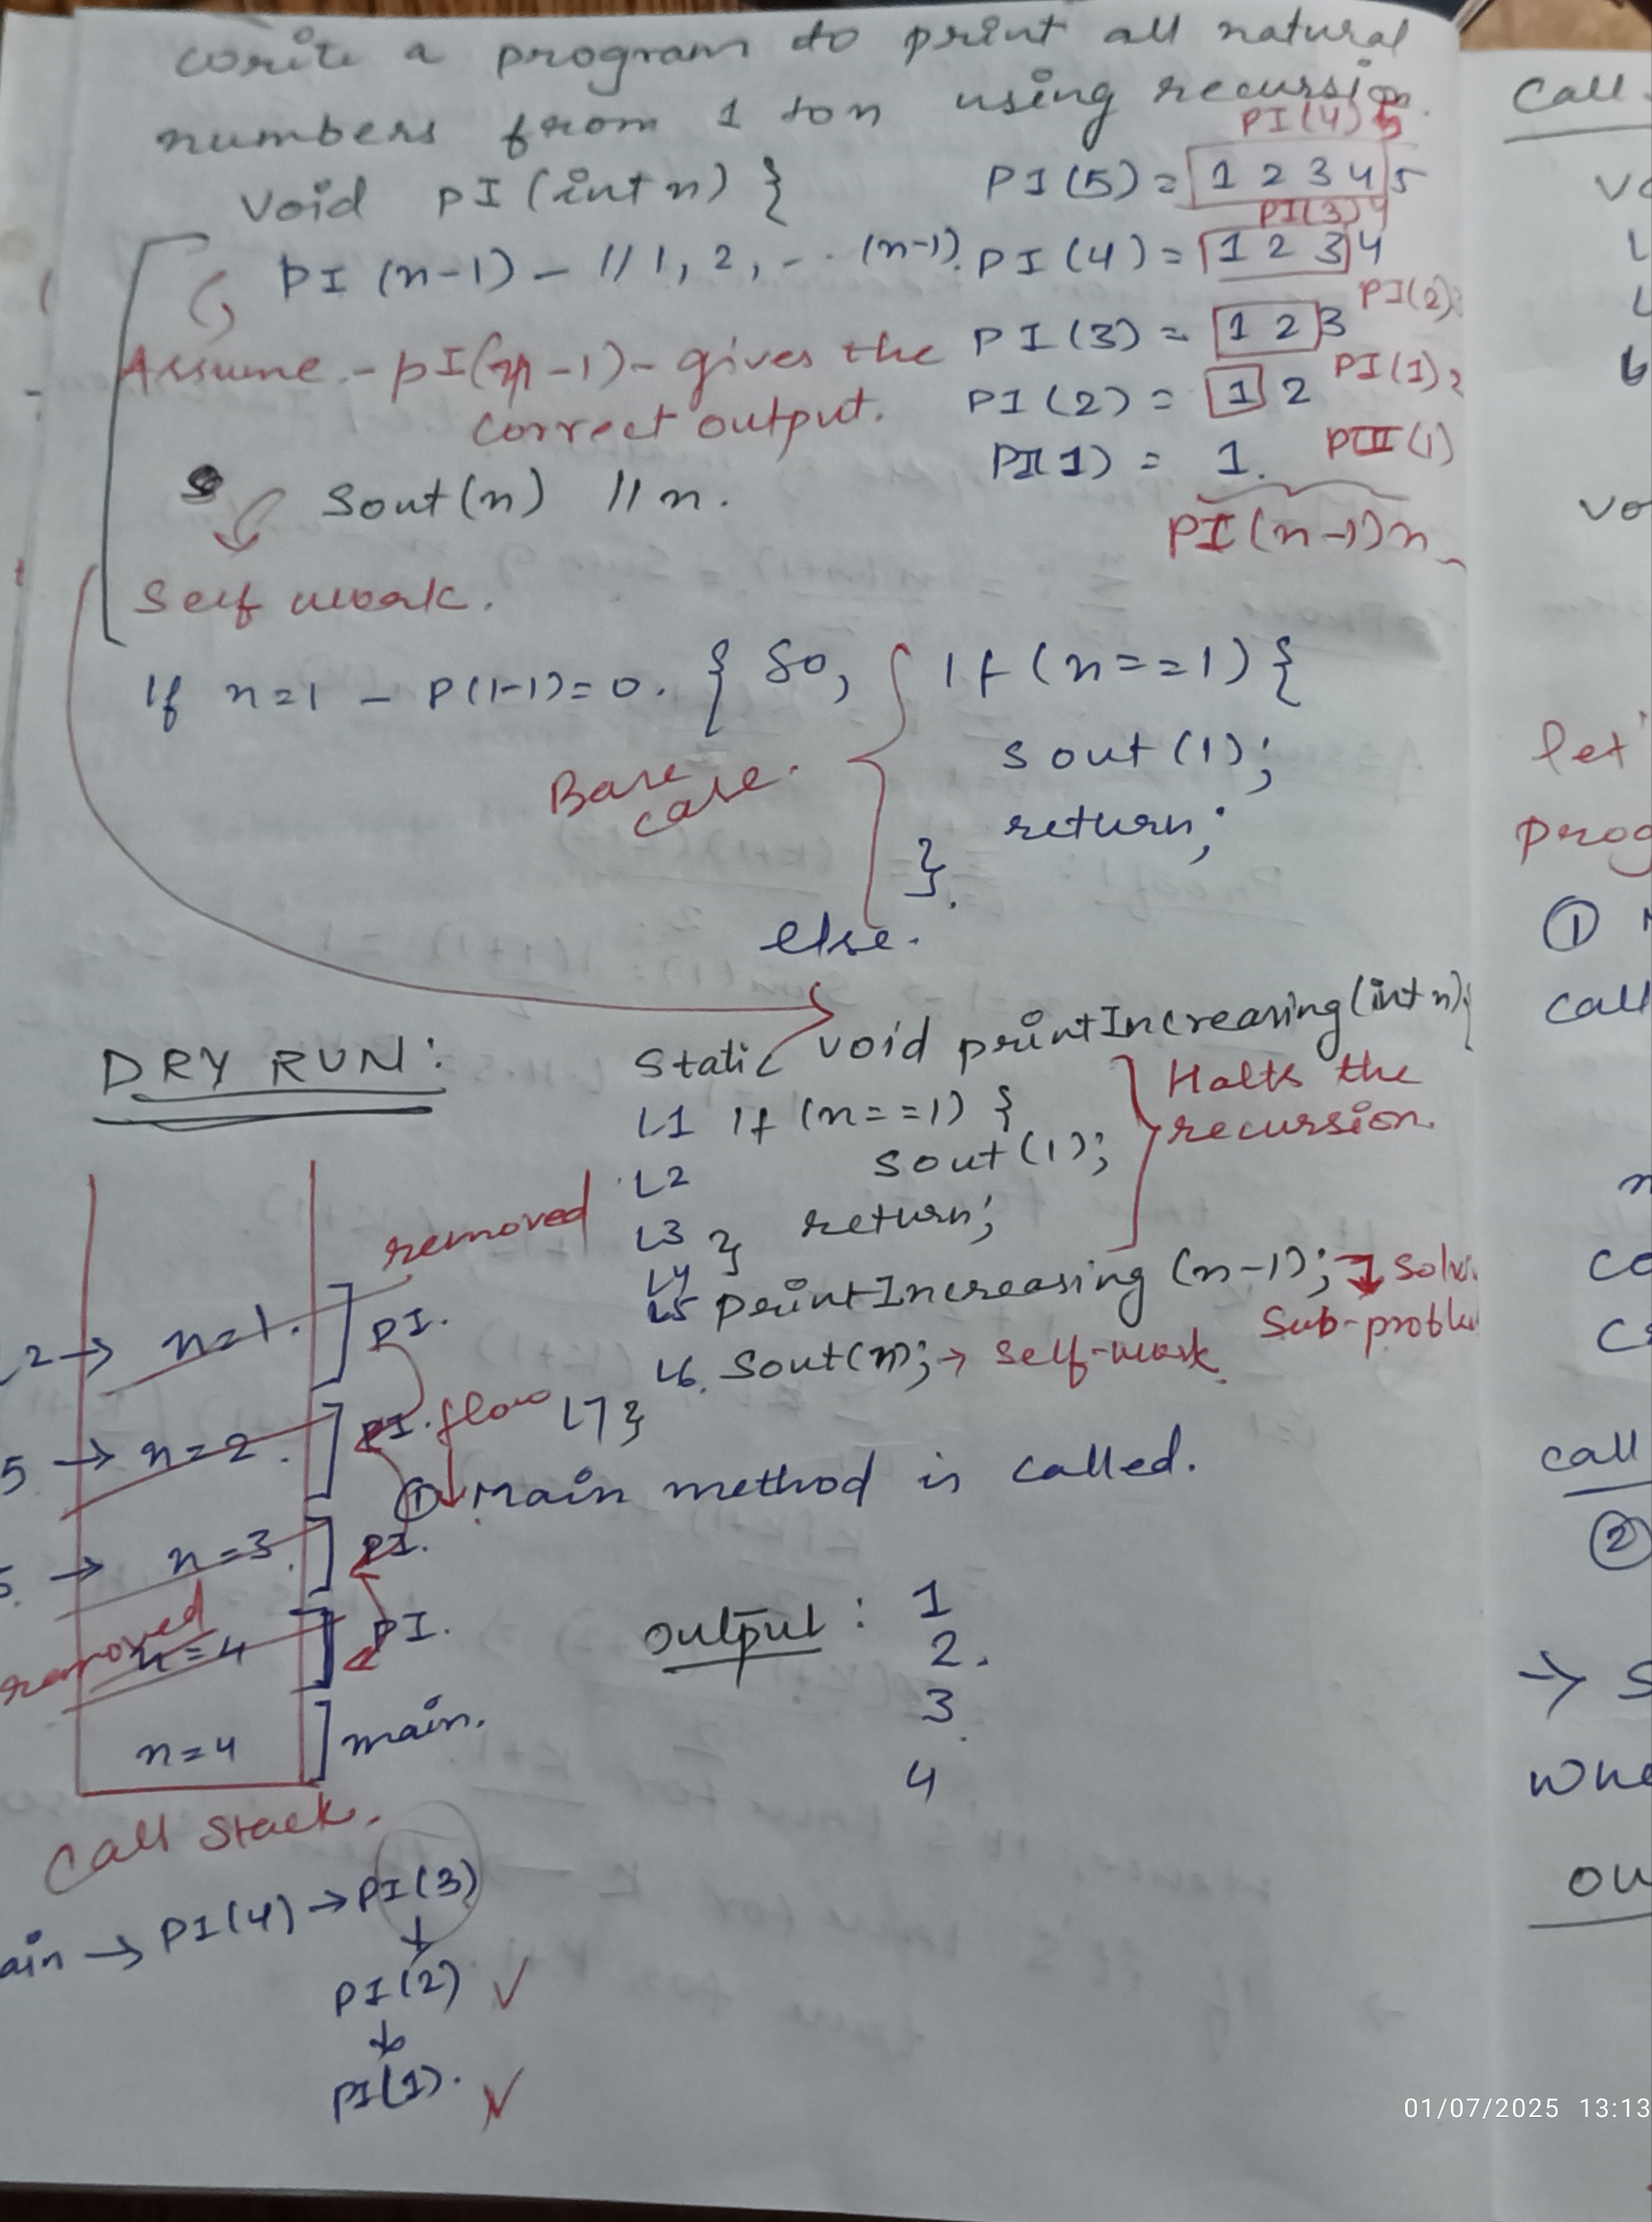 write a program to print all natural
numbers from 1 to n using recursion.
void pI (int n) }
PI (n-1) - // 1, 2, -.. (n-1).
Assume - pI(n-1) - gives the
correct output.
Sout(n) // n.
Self work.
PI(4) 5
PI(5) = 1 2 3 4 5
PI(3) 4
PI(4) = 1 2 3 4
PI(2) 3
PI(3) = 1 2 3
PI(1) 2
PI(2) = 1 2
PI(1)
PI(1) = 1.
PI(n-1) n
If n=1 - P(1-1)=0. } So,
If (n==1) {
sout(1);
return;
}.
Base case.
else.
DRY RUN:
Static void printIncreasing(int n){
L1 If (n==1) }
L2 sout(1);
L3 } return;
L4
L5 printIncreasing (n-1); → Solv
Sub-proble
L6. Sout(n); → Self-work
L7 }
Halts the
recursion.
removed
2 → n=1. ] PI.
5 → n=2. ] PI. flow
5 → n=3. ] PI.
removed n=4 ] PI.
n=4 ] main.
Call Stack.
① Main method is called.
output: 1
2.
3
4
ain → PI(4) → PI(3)
↓
PI(2) ✓
↓
PI(1). ✓
Call
vo
L
L
vo
let'
prog
①
call
co
call
②
→ S
whe
ou
01/07/2025 13:13